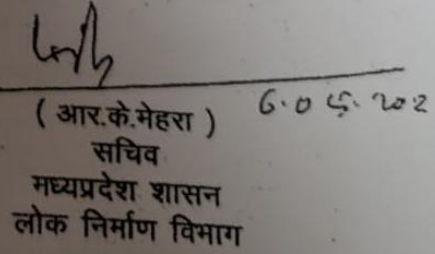 ( आर.के.मेहरा )
सचिव
मध्यप्रदेश शासन
लोक निर्माण विभाग